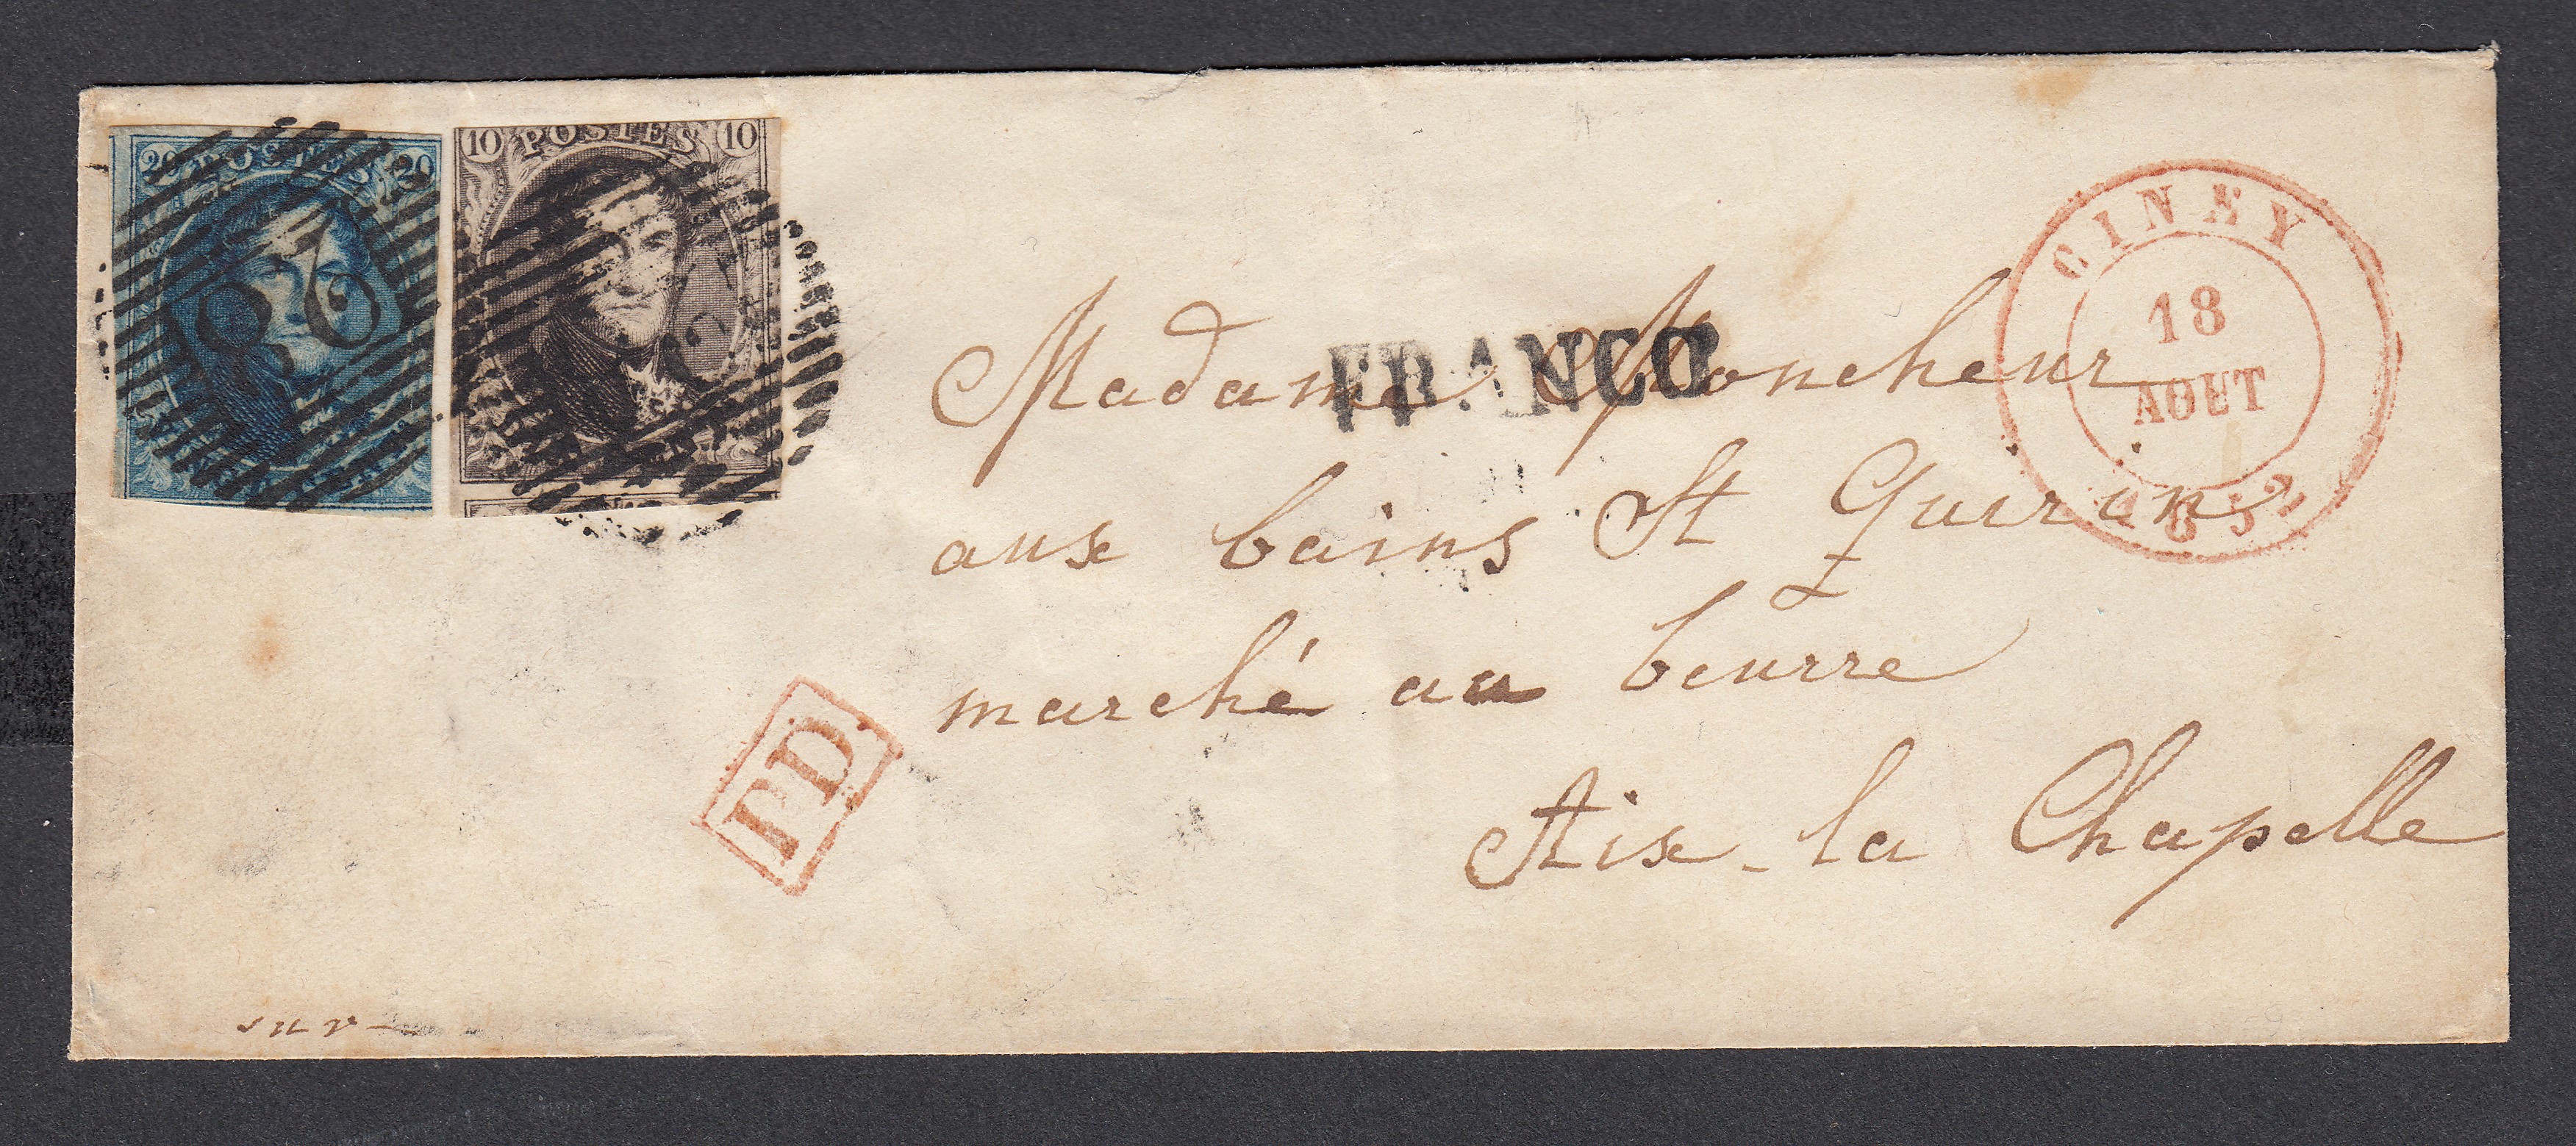 20 POSTES 20
10 POSTES 10
28
CINEY
18
AOUT
1852
FRANCO
Madame Moncheur
aux bains St Quirin
marché au beurre
Aix-la Chapelle
P.D.
sur-